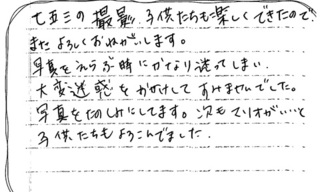 七五三の撮影、子供たちも楽しくできたので
またよろしくおねがいします。
写真をえらぶ時にかなり迷ってしまい、
大変迷惑をかけしてすみませんでした。
写真をたのしみにしてます。次も がいいと
子供たちもよろこんでました。